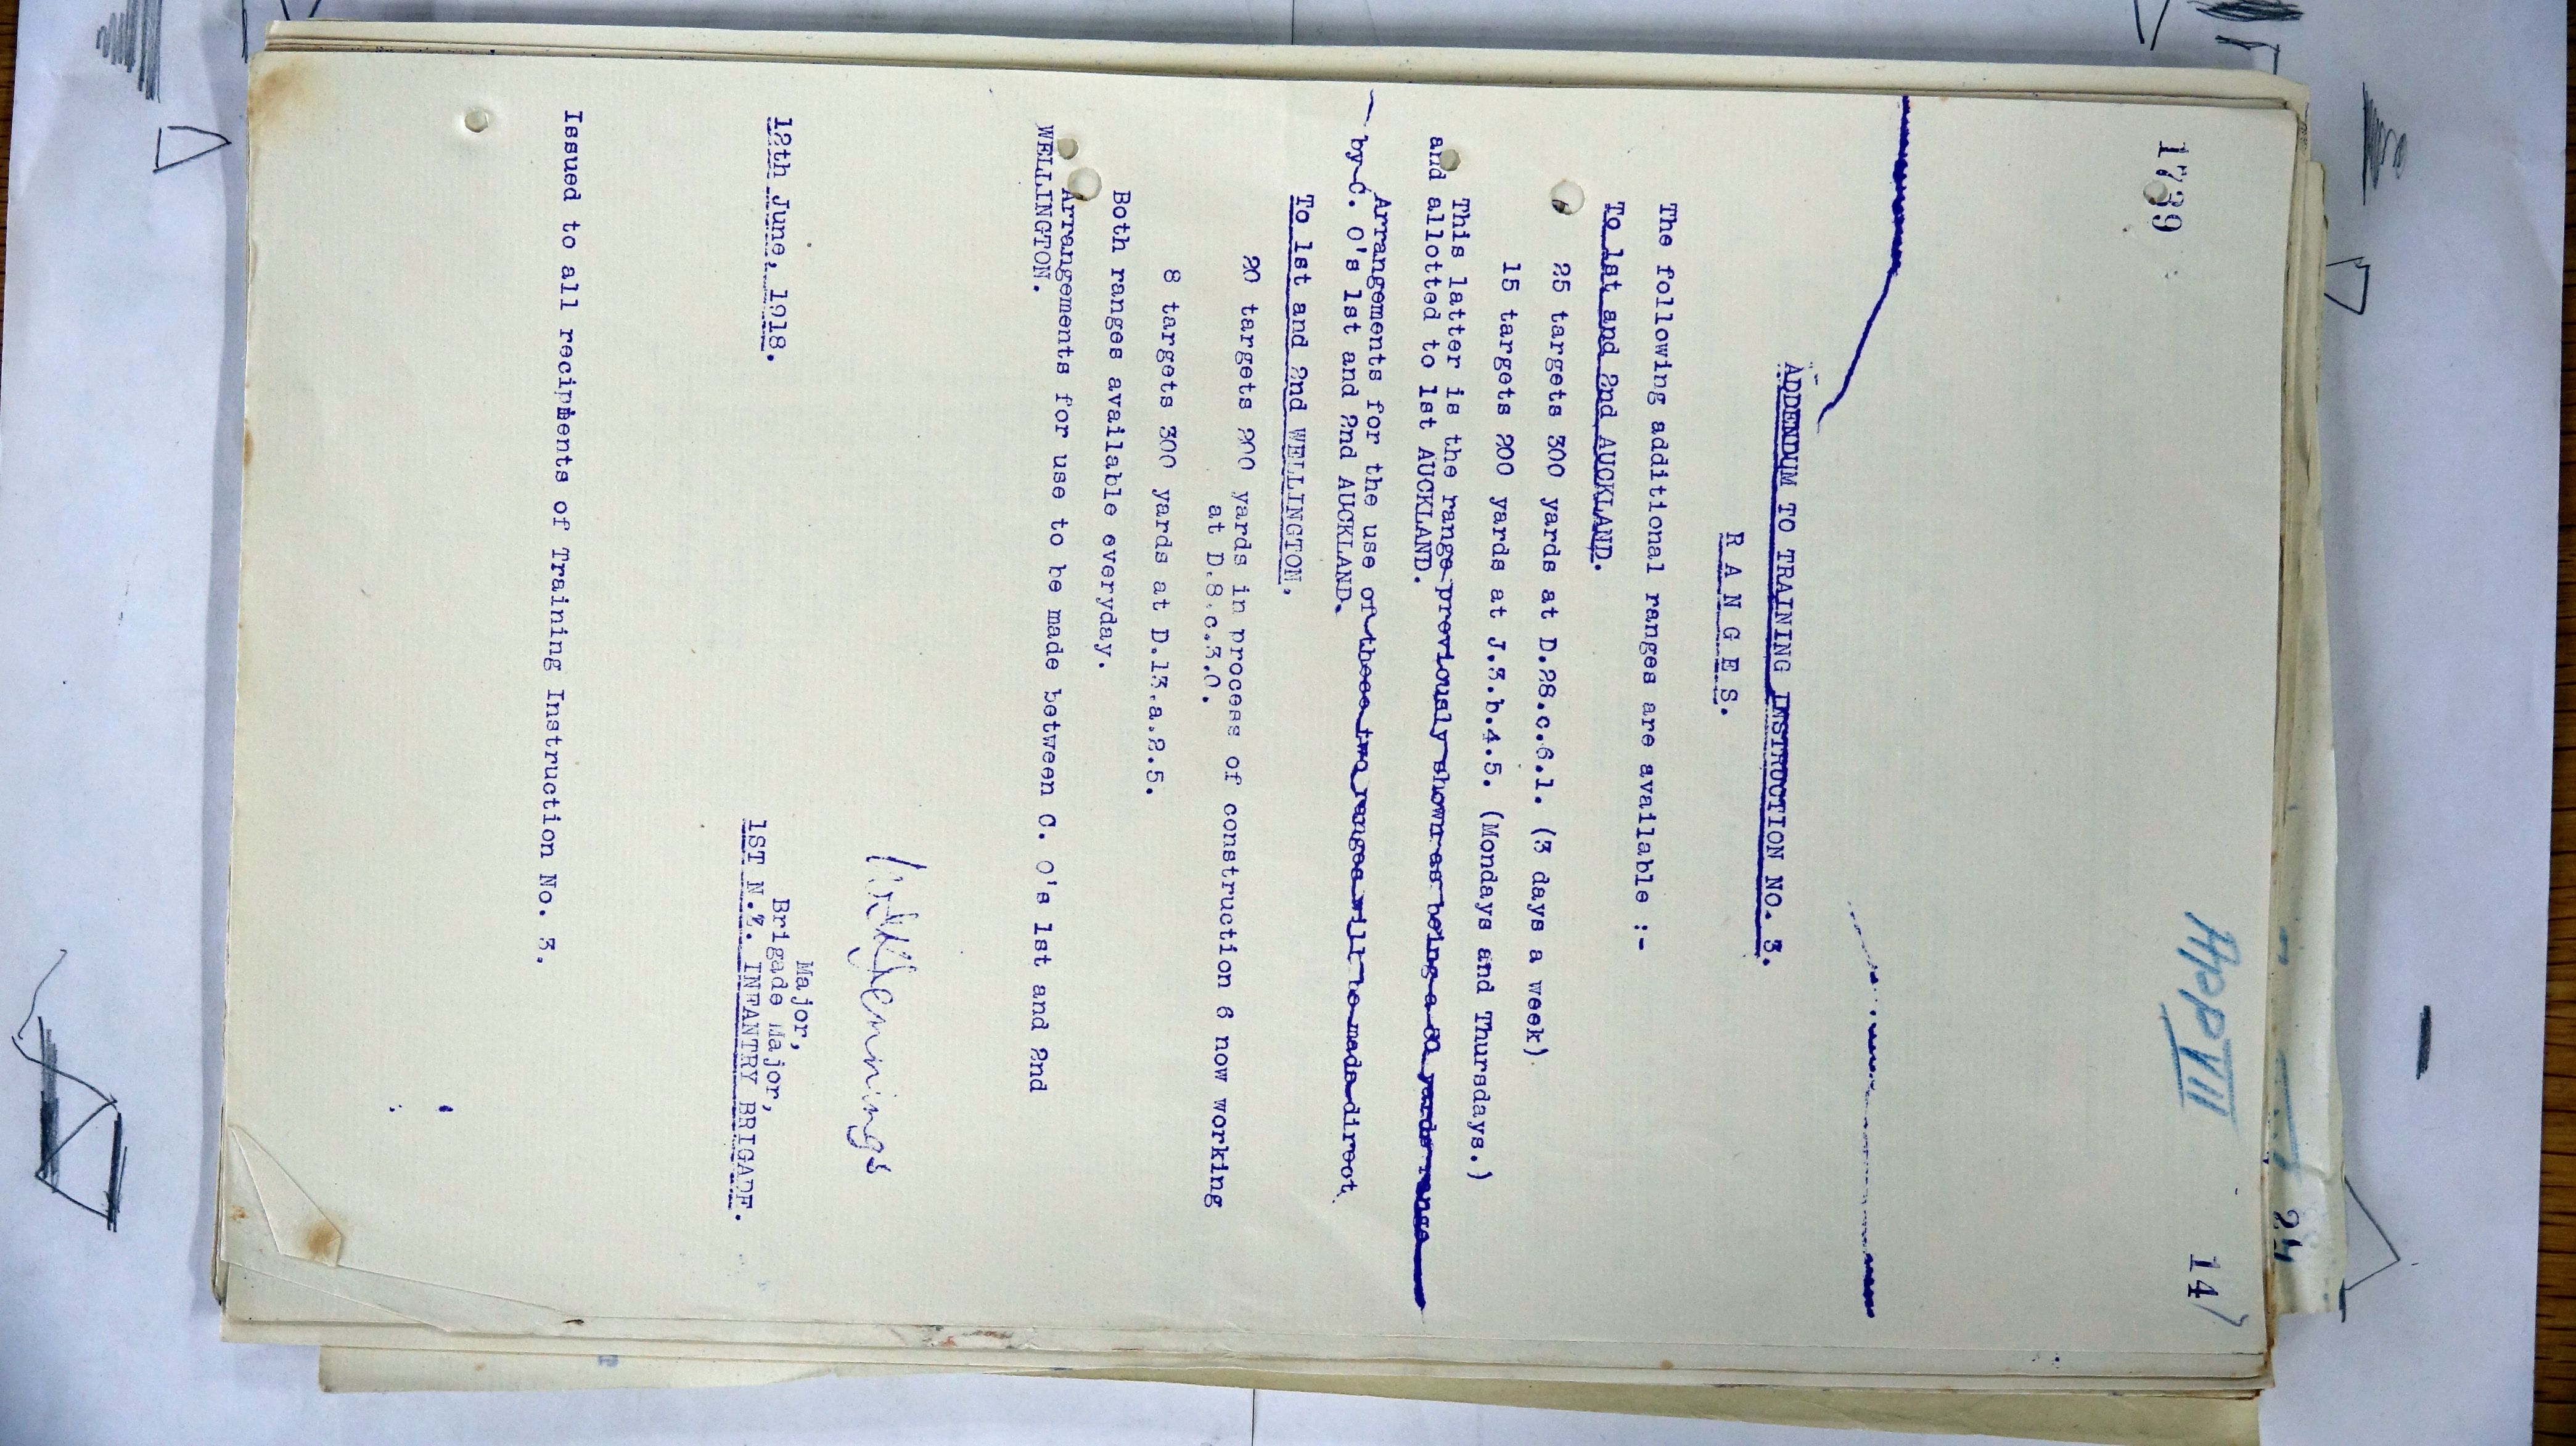 1739
App VIII
14
24
ADDENDUM TO TRAINING INSTRUCTION NO. 3.
R A N G E S.
The following additional ranges are available :-
To 1st and 2nd AUCKLAND.
25 targets 300 yards at D.28.c.6.1. (3 days a week)
15 targets 200 yards at J.3.b.4.5. (Mondays and Thursdays.)
This latter is the range previously shown as being a yards range
and allotted to 1st AUCKLAND.
Arrangements for the use of these two ranges will be made direct
by C. O's 1st and 2nd AUCKLAND.
To 1st and 2nd WELLINGTON.
20 targets 200 yards in process of construction 6 now working
at D.8.c.3.0.
8 targets 300 yards at D.13.a.2.5.
Both ranges available everyday.
Arrangements for use to be made between C. O's 1st and 2nd
WELLINGTON.
Major,
Brigade Major,
12th June, 1918. 1ST N.Z. INFANTRY BRIGADE.
Issued to all recipients of Training Instruction No. 3.